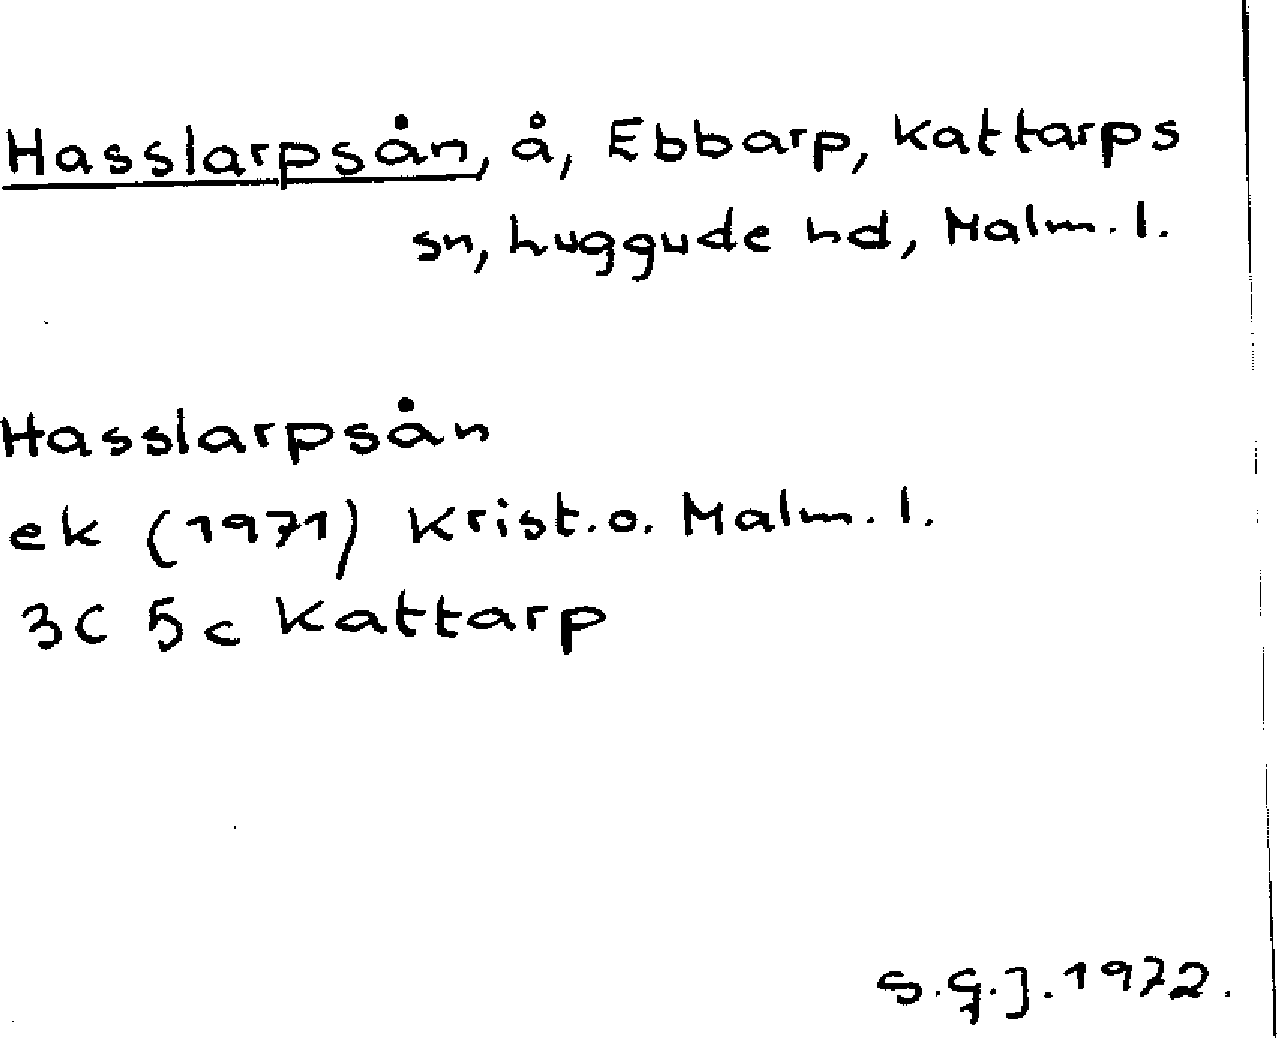 Hasslarpsån, å, Ebbarp, Kattarps
sn, Luggude hd, Malm. l.
Hasslarpsån
ek (1971) Krist. o. Malm. l.
3C 5c Kattarp
S.G.J. 1972.